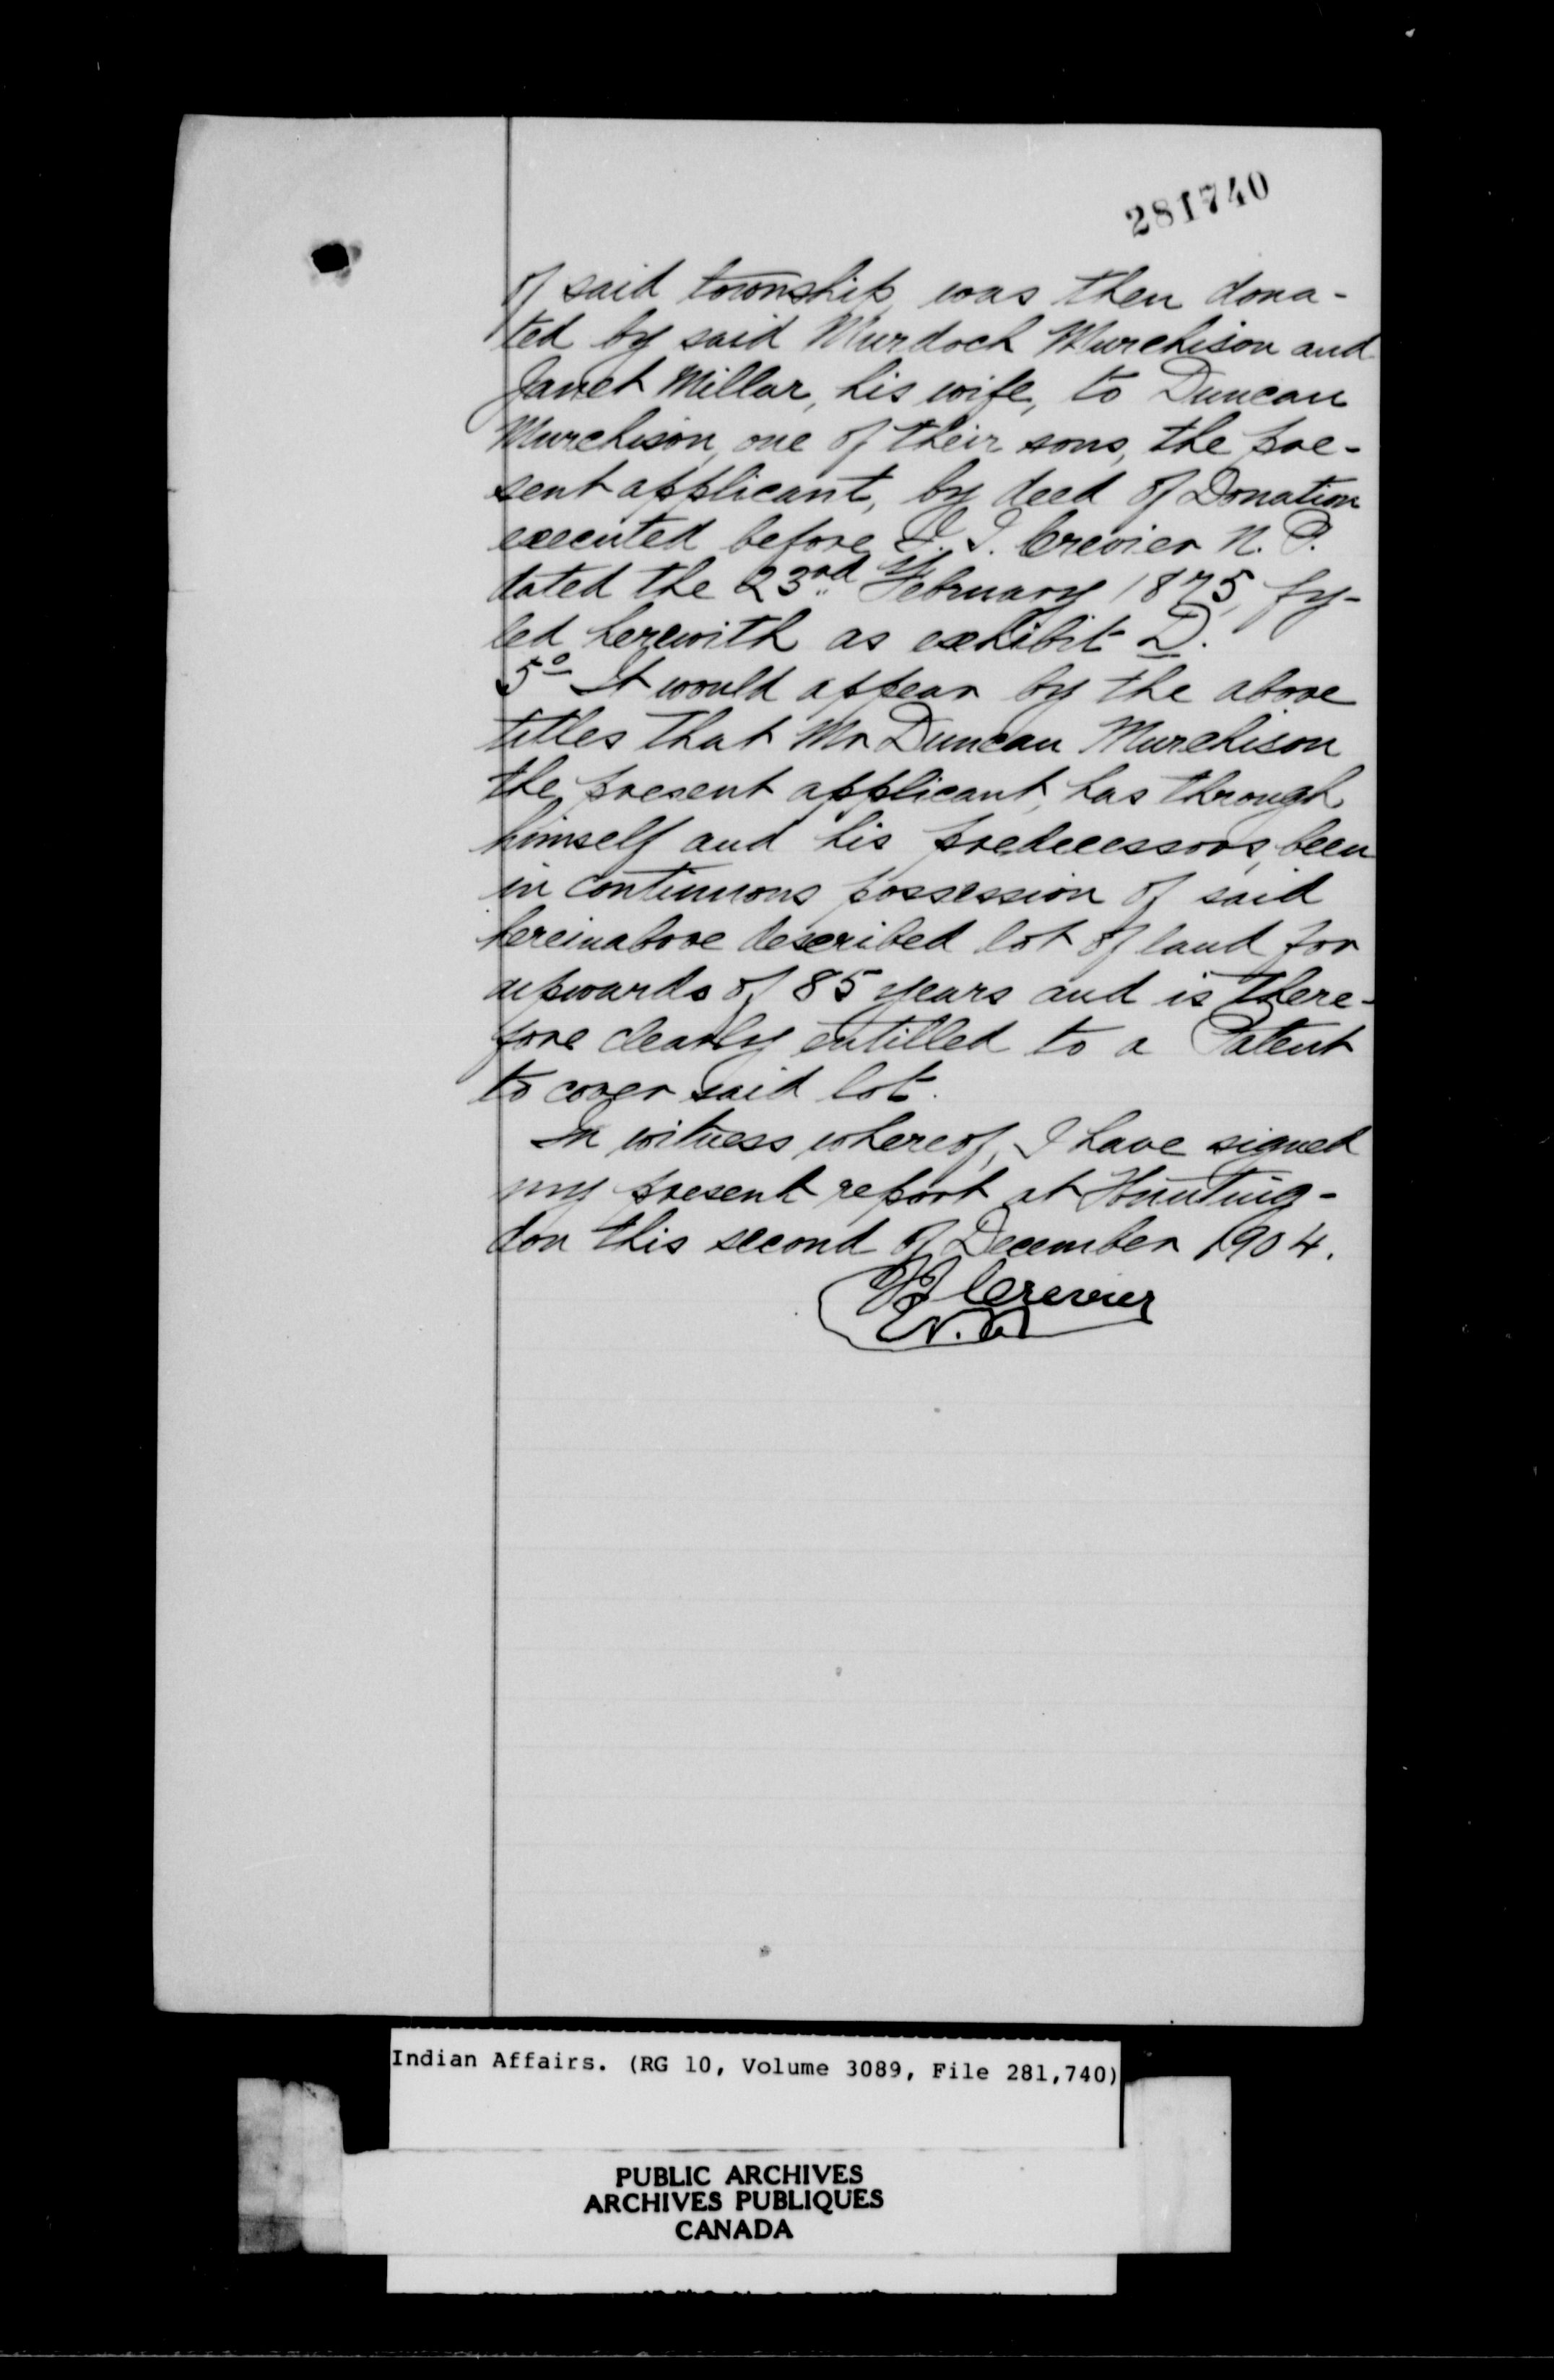 281740
of said township, was then dona-
ted by said Murdoch Murchison and
Janet Millar, his wife, to Duncan
Murchison, one of their sons, the pre-
sent applicant, by deed of Donation
executed before I. I. Crevier N. P.
dated the 23rd February 1875, fy-
led herewith as exhibit D.
5o It would appear by the above
titles that Mr Duncan Murchison
the present applicant, has through
himself and his predecessors, been
in continuous possession of said
hereinabove described lot of land for
upwards of 85 years and is there-
fore clearly entitled to a Patent
to cover said lot.
In witness whereof, I have signed
my present report at Hunting-
don this second of December 1904.
I I Crevier
N. P.
Indian Affairs. (RG 10, Volume 3089, File 281,740)
PUBLIC ARCHIVES
ARCHIVES PUBLIQUES
CANADA